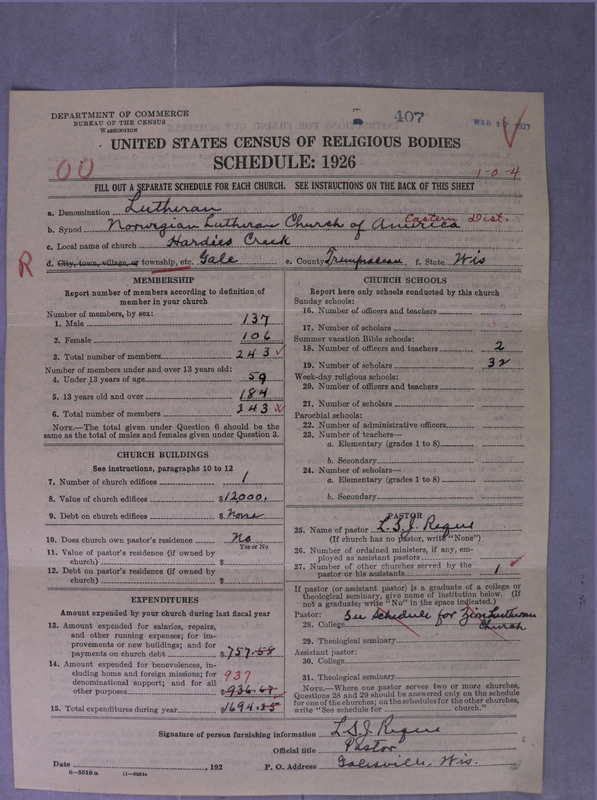 DEPARTMENT OF COMMERCE
BUREAU OF THE CENSUS
WASHINGTON
407
MAR 1927
UNITED STATES CENSUS OF RELIGIOUS BODIES
SCHEDULE: 1926
00
1-0-4
FILL OUT A SEPARATE SCHEDULE FOR EACH CHURCH. SEE INSTRUCTIONS ON THE BACK OF THIS SHEET
a. Denomination Lutheran
b. Synod Norwegian Lutheran Church of America Eastern Dist.
c. Local name of church Hardies Creek
R
d. City, town, village, or township, etc. Gale e. County Trempealeau f. State Wis
MEMBERSHIP
Report number of members according to definition of
member in your church
Number of members, by sex:
1. Male 137
2. Female 106
3. Total number of members 243
Number of members under and over 13 years old:
4. Under 13 years of age 59
5. 13 years old and over 184
6. Total number of members 243
NOTE.—The total given under Question 6 should be
same as the total of males and females given under Question 3.
CHURCH BUILDINGS
See instructions, paragraphs 10 to 12
7. Number of church edifices 1
8. Value of church edifices $12000.
9. Debt on church edifices $ None
10. Does church own pastor's residence? No
Yes or No
11. Value of pastor's residence (if owned by
church) $
12. Debt on pastor's residence (if owned by
church) $
EXPENDITURES
Amount expended by your church during last fiscal year
13. Amount expended for salaries, repairs,
and other running expenses; for im-
provements or new buildings; and for
payments on church debt $757.58
14. Amount expended for benevolences, in-
cluding home and foreign missions; for 937
denominational support; and for all
other purposes $936.67
15. Total expenditures during year $1694.25
CHURCH SCHOOLS
Report here only schools conducted by this church
Sunday schools:
16. Number of officers and teachers
17. Number of scholars
Summer vacation Bible schools:
18. Number of officers and teachers 2
19. Number of scholars 32
Week-day religious schools:
20. Number of officers and teachers
21. Number of scholars
Parochial schools:
22. Number of administrative officers
23. Number of teachers—
a. Elementary (grades 1 to 8)
b. Secondary
24. Number of scholars—
a. Elementary (grades 1 to 8)
b. Secondary
PASTOR
25. Name of pastor L.S.J. Reque
(If church has no pastor, write "None")
26. Number of ordained ministers, if any, em-
ployed as assistant pastors
27. Number of other churches served by the
pastor or his assistants 1
If pastor (or assistant pastor) is a graduate of a college or
theological seminary, give name of institution below. (If
not a graduate; write "No" in the space indicated.)
Pastor: See schedule for Zion Lutheran
28. College Church
29. Theological seminary
Assistant pastor:
30. College
31. Theological seminary
NOTE.—Where one pastor serves two or more churches,
Questions 28 and 29 should be answered only on the schedule
for one of the churches; on the schedules for the other churches,
write "See schedule for church."
Signature of person furnishing information L.S.J. Reque
Official title Pastor
Date , 192 P. O. Address Galesville, Wis.
8—5516a 11—6564a